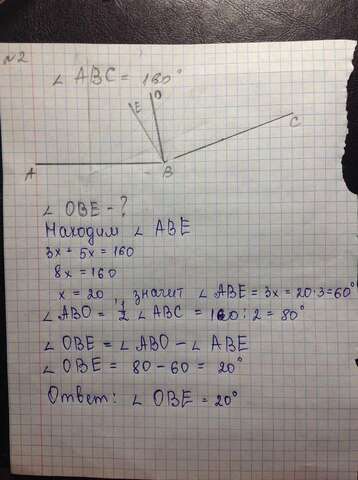 №2
∠ ABC = 160°
E O
C
A B
∠ OBE - ?
Находим ∠ ABE
3x + 5x = 160
8x = 160
x = 20, значит ∠ ABE = 3x = 20·3 = 60°
∠ ABO = 1/2 ∠ ABC = 160 : 2 = 80°
∠ OBE = ∠ ABO - ∠ ABE
∠ OBE = 80 - 60 = 20°
Ответ: ∠ OBE = 20°